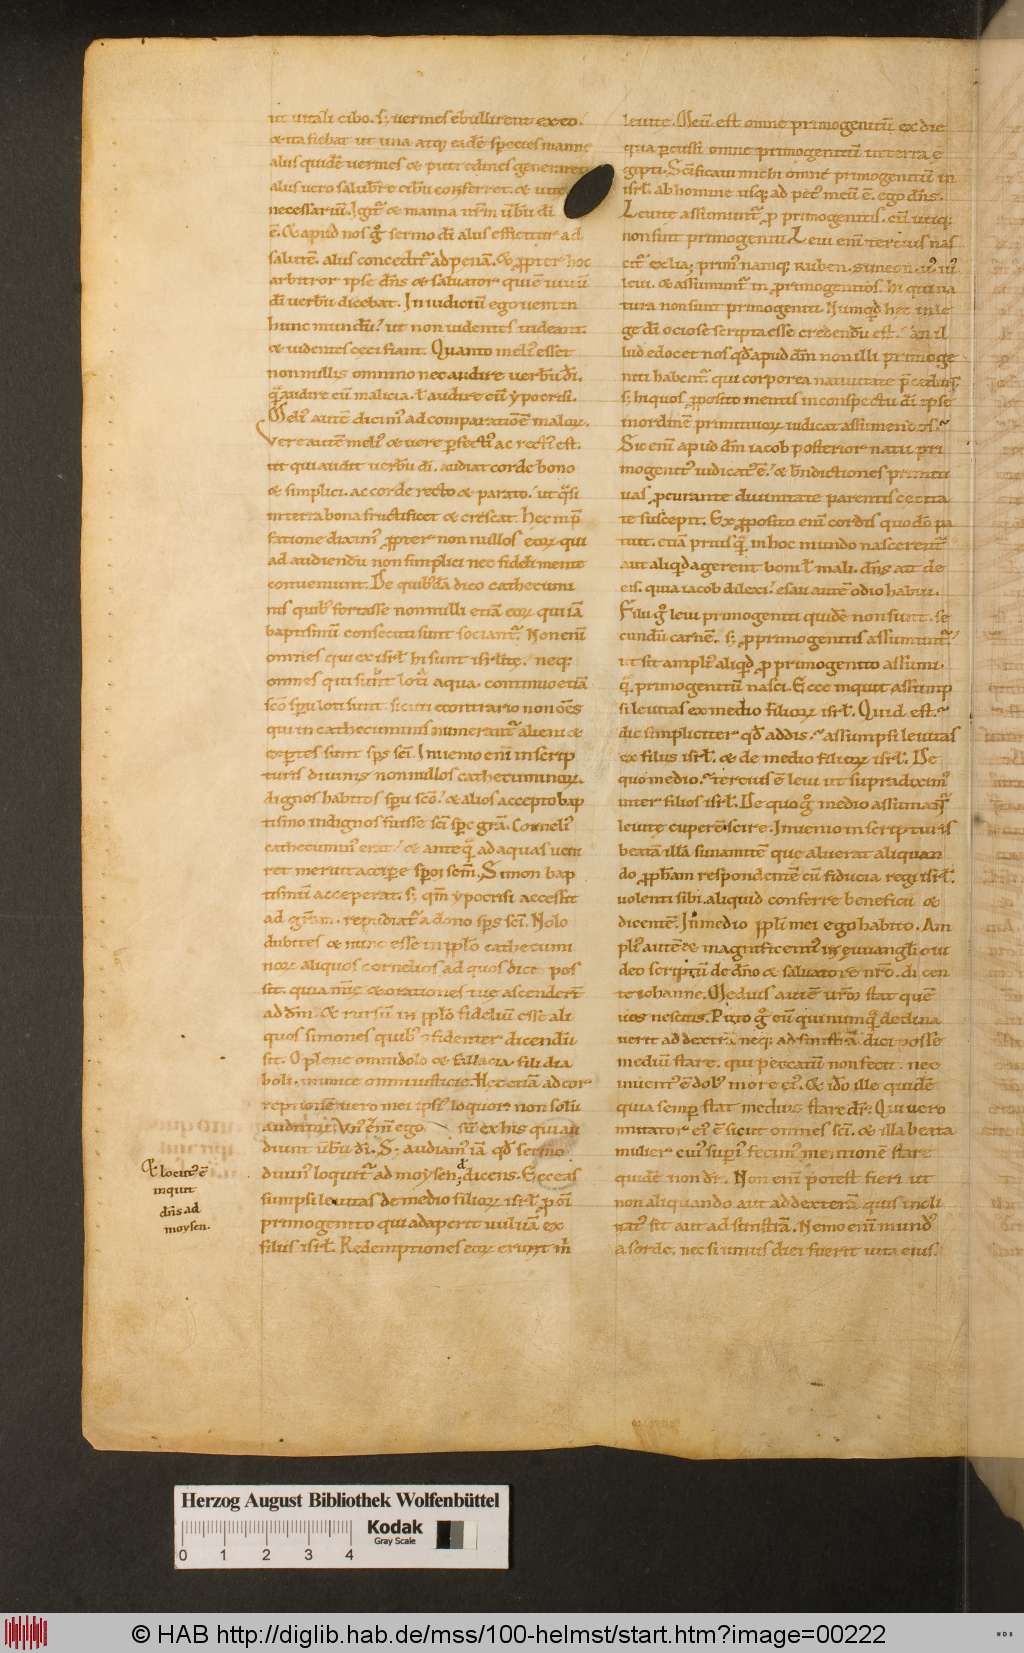 ut vitali cibo. s; vermes ebullirent ex eo.
& ita fiebat ut una atq; eadē species manne
aliis quidē vermes & putredines generaret
aliis vero salubrē cibū conferret. &
necessariū. Igit̄ & manna nr̄m ūbū dī
ē. & apud nos g̊ sermo dī aliis efficitur ad
salutē. aliis concedit̄ ad penā. & ꝓpter hoc
arbitror ipse dn̄s & salvator quiē vivū
dī verbū dicebat. In iudiciū ego veni in
hunc mundū. ut non videntes videant.
& videntes ceci fiant. Quanto meli᾽ esset
nonnullis omnino nec audire verbū dī.
q̄ audire cū malicia. ł audire cū ypocrisi.
Meli᾽ autē dicim᾽ ad comparationē maloꝝ.
Vere autē meli᾽ & vere ꝑfect᾽ ac rect᾽ est.
ut qui audit verbū dī. audiat corde bono
& simplici. ac corde recto & parato. ut q̄si
in terra bona fructificet & crescat. Hec in p̄
fatione dixim᾽ ꝓpter nonnullos eoꝝ qui
ad audiendū non simplici nec fideli mente
conveniunt. De quib᾽dā dico cathecumi
nis quib᾽ fortasse nonnulli etiā eoꝝ qui iā
baptismū consecuti sunt sociant̄. Non enī
omnes qui ex isrł hi sunt isrłite. neq;
omnes qui sunt loti aqua. continuo etiā
sc̄o spū loti sunt. sicuti econtrario non om̄s
qui in cathecuminis numerant̄ alieni &
expertes sunt sp̄s sc̄i. Invenio enī in scrip
turis divinis nonnullos cathecuminoꝝ
dignos habitos spū sc̄o. & alios accepto bap
tismo indignos fuisse sc̄i sp̄c grā. Corneli᾽
cathecumin᾽ erat. & anteq̄ ad aquas veni
ret meruit accipere sp̄m sc̄m. Simon bap
tismū acceperat. s; qm̄ ypocrisi accessit
ad grām. repudiat̄ a dono sp̄s sc̄i. Nolo
dubites & nunc esse in ppło cathecumi
noꝝ aliquos cornelios ad quos dici pos
sit. quia & orationes tue ascendert̄
ad dm̄. & rursū in ppło fideliū esse ali
quos simones quib᾽ fidenter dicendū
sit. O plene omni dolo & fallacia. fili dia
boli. inimice omni iusticie. Hec etiā ad cor
reptionē vero mei ipsi᾽ loquor. non solū
auditorū. Vn᾽ enī ego sū ex his qui au
diunt ūbū dī. S; audiam᾽ iā qd̄ sermo
divin᾽ loquit̄ ad moysen. dicens. Ecce as
sumpsi levitas de medio filioꝝ isrł. ꝓ om̄i
primogenito qui adaperit vulvā ex
filiis isrł. Redemptiones eoꝝ erunt m̄
& locut᾽ ē
inquit
dn̄s ad
moysen.
levite. Meū est omne primogenitū ex die
qua percussi omne primogenitū in terra e
gipti. Sc̄ificavi michi omne primogenitū in
isrł. ab homine usq; ad pec᾽ meū ē. ego dn̄s.
Levite assumunt̄ ꝓ primogenitis. cū utiq;
non sint primogeniti. Levi enī tercius nas
cit̄ ex lia; prim᾽ namq; ruben. symeon
levi. & assumunt̄ in primogenitos. hi qui na
tura non sunt primogeniti. Numqd̄ hec in le
ge dī ociose scripta esse credendū est. an il
lud edocet nos qd̄ apud dm̄ non illi primoge
niti habent̄. qui corporea nativitate
s; hi quos ꝓposito mentis in conspectu dī ipse
in ordinē primitivoꝝ iudicat assumendos.
Sic enī apud dm̄ iacob posterior natu pri
mogenit᾽ iudicat᾽ ē. & bn̄dictiones primiti
vas ꝓcurante divinitate parentis cecita
te suscepit. Ex ꝓposito enī cordis quod dō pa
tuit. etiā priusq̄ in hoc mundo nascerent̄
aut aliqd̄ agerent boni ł mali. dn̄s ait de
eis. quia iacob dilexi. esau autē odio habui.
Filii g̊ levi primogeniti quidē non sunt. se
cundū carnē. s; ꝓ primogenitis assumunt̄.
ut sit ampli᾽ aliqd̄ ꝓ primogenito assumi.
q̄ primogenitū nasci. Ecce inquit assump
si levitas ex medio filioꝝ isrł. Quid est.
dic simpliciter qd̄ addis. assumpsi levitas
ex filiis isrł. & de medio filioꝝ isrł. De
quo medio. tercius ē levi ut supradixim᾽
inter filios isrł. De quo g̊ medio assumant̄
levite cuperē scire. Invenio in scripturis
beatā illā sunamitē que alverat aliquan
do ꝓphām respondentē cū fiducia regi isrł.
volenti sibi aliquid conferre beneficii &
dicentē. In medio ppłi mei ego habito. Am
pli᾽ autē & magnificenti᾽ in evvangłi ovi
deo scriptū de dn̄o & salvatore nr̄o. di cen
te iohanne. Medius autē vr̄m stat quē
vos nescitis. Puto g̊ eū qui numq̄ declina
verit ad dextrā neq; ad sinistrā. dici posse
mediū stare. qui peccatū non fecit. nec
invent᾽ ē dol᾽ in ore ei᾽. & idō ille quidē
quia semp̄ stat medius stare dr̄; Qui vero
imitator ei᾽ ē sicut omnes sc̄i. & illa beata
mulier cui᾽ superi᾽ fecim᾽ mentionē stare
quidē non dr̄. Non enī potest fieri ut
non aliquando aut ad dexterā quis incli
nat᾽ sit aut ad sinistrā. Nemo enī mund᾽
a sorde. nec si unius diei fuerit vita eius.
Herzog August Bibliothek Wolfenbüttel
Kodak
Gray Scale
0 1 2 3 4
© HAB http://diglib.hab.de/mss/100-helmst/start.htm?image=00222